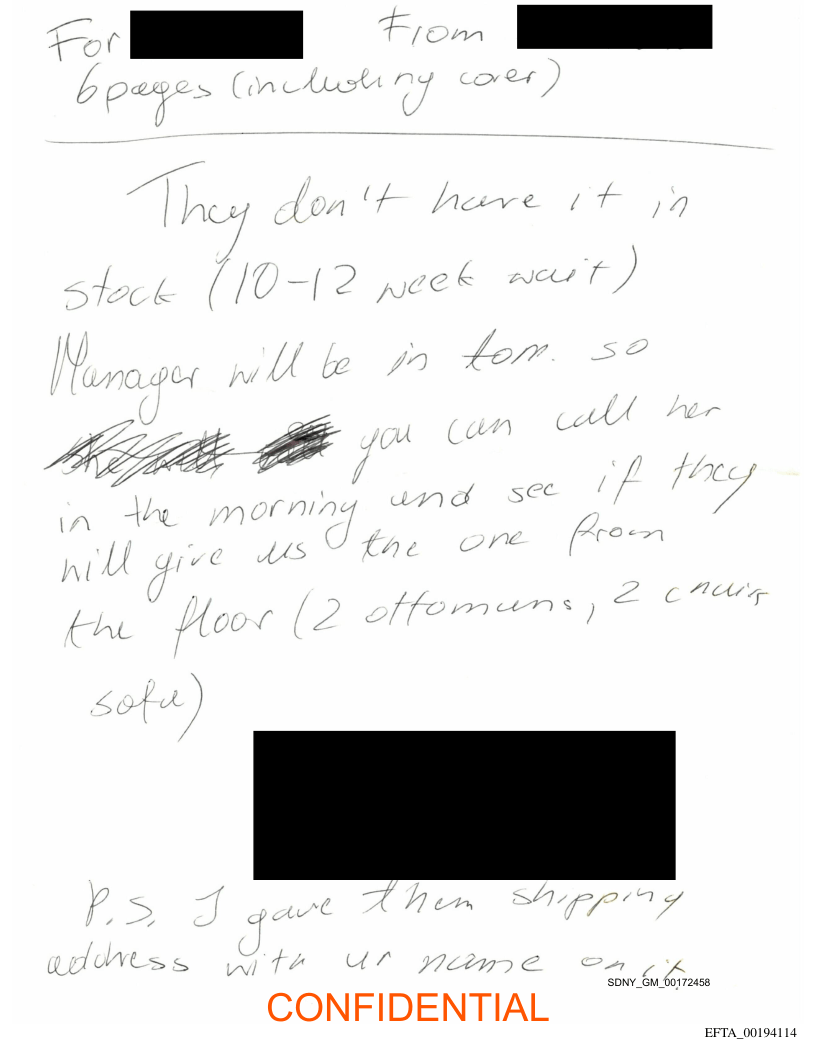 For From
6 pages (including cover)
They don't have it in
stock (10-12 week wait)
Manager will be in tom. so
you can call her
in the morning and see if they
will give us the one from
the floor (2 ottomans, 2 chairs
sofa)
P.S. I gave them shipping
address with ur name on it.
SDNY_GM_00172458
CONFIDENTIAL
EFTA_00194114